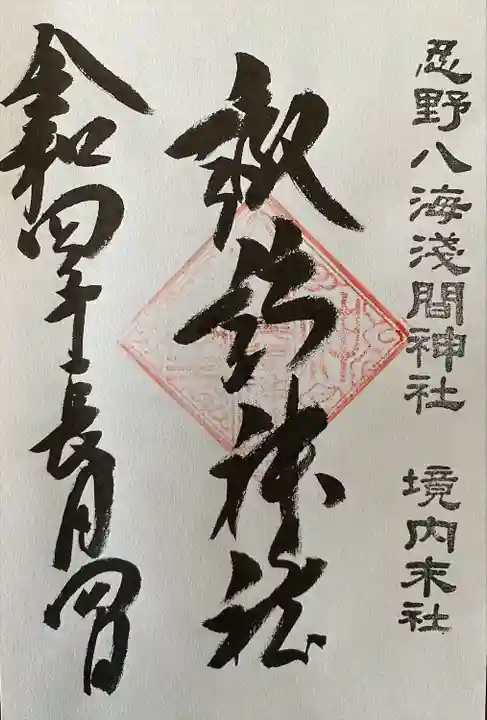 忍野八海淺間神社 境内末社
神社
令和四年長月四日